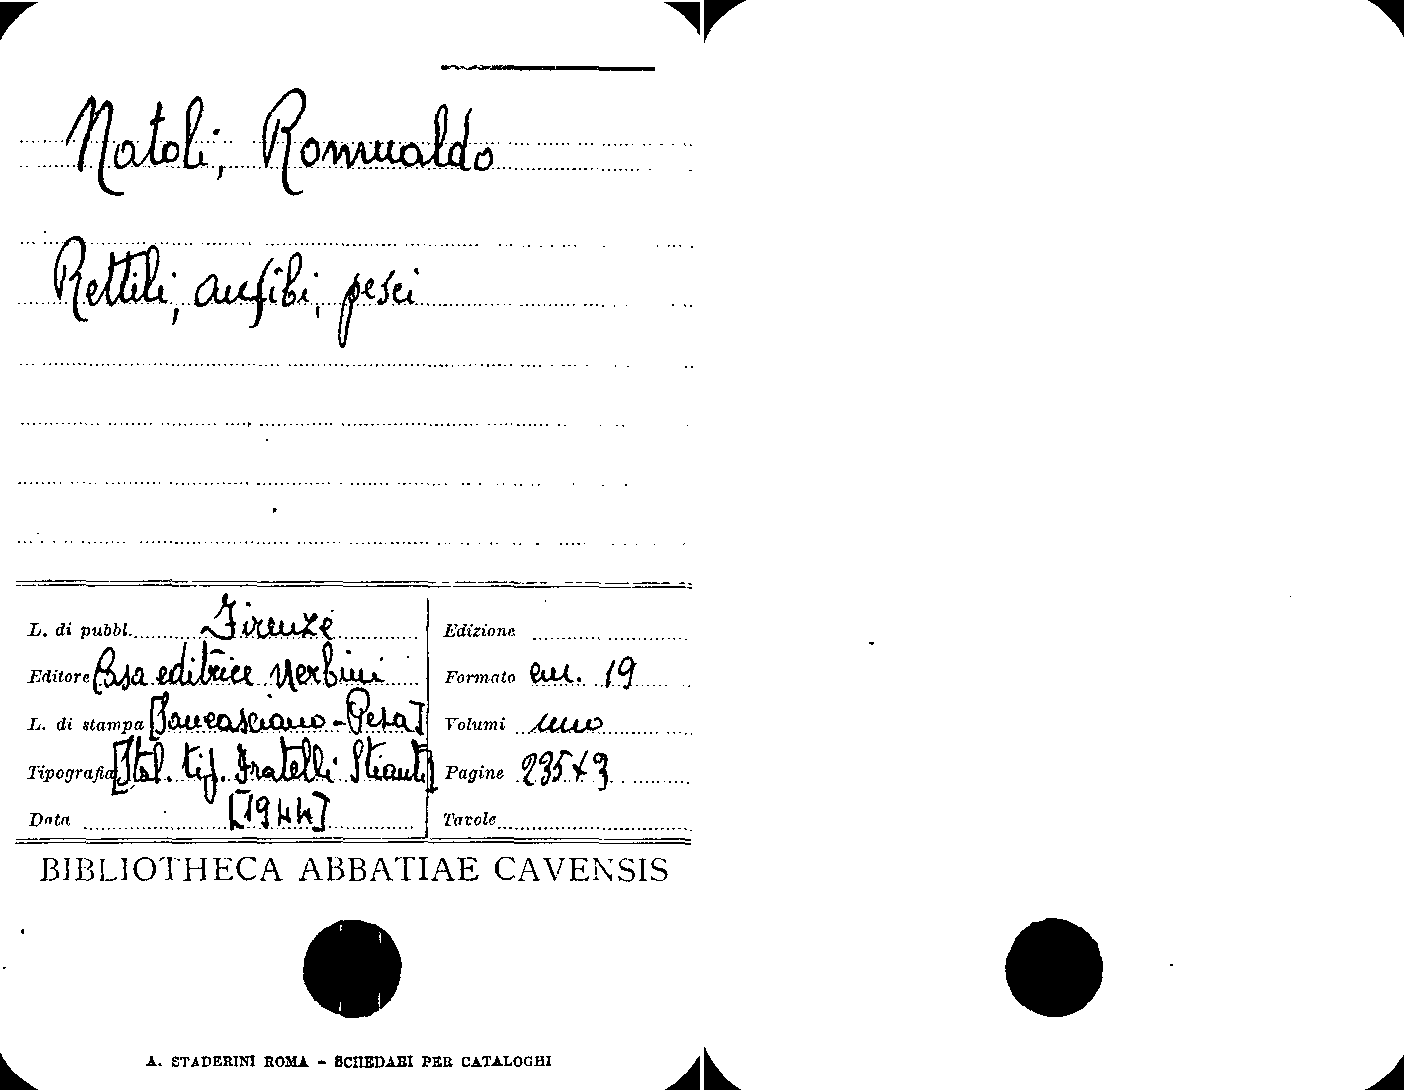 Natoli, Romualdo
Rettili, anfibi, pesci
L. di pubbl. Firenze
Editore Casa editrice Nerbini
L. di stampa [Sancasciano-Pesa]
Tipografia [Stab. tip. Fratelli Stianti]
Data [1944]
Edizione
Formato cm. 19
Volumi uno
Pagine 235+3
Tavole
BIBLIOTHECA ABBATIAE CAVENSIS
A. STADERINI ROMA - SCHEDARI PER CATALOGHI